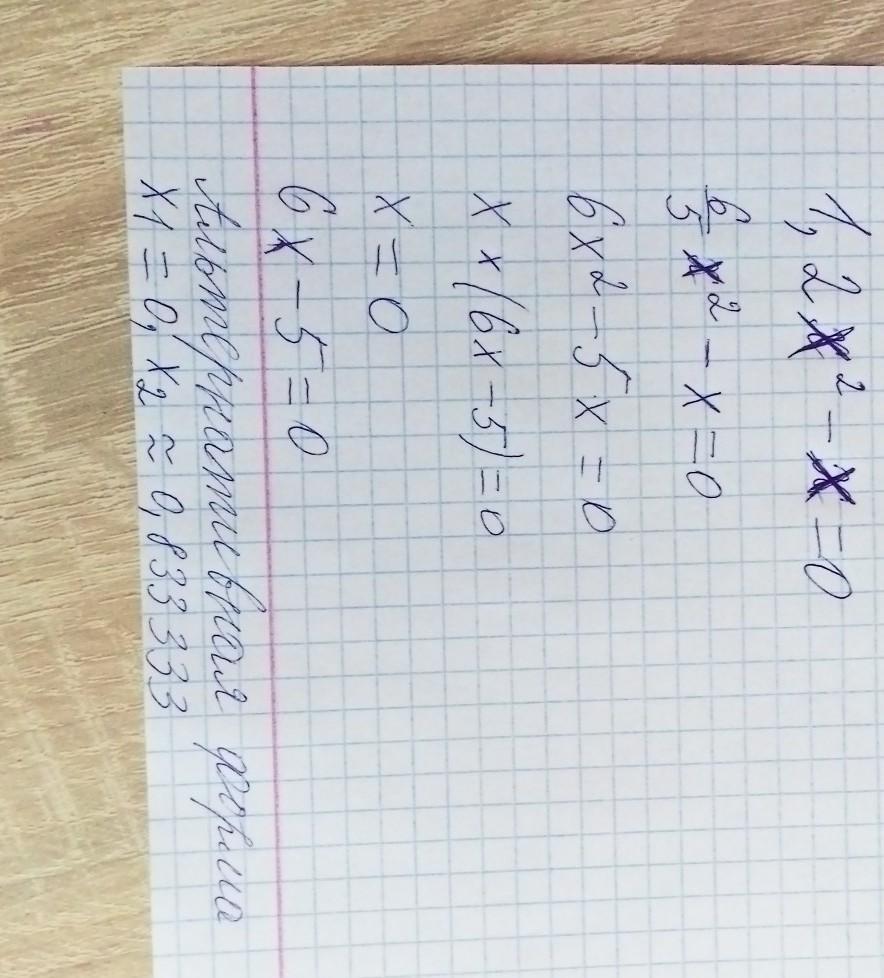 1,2x² - x = 0
6/5 x² - x = 0
6x² - 5x = 0
x × (6x - 5) = 0
x = 0
6x - 5 = 0
Альтернативная форма
x1 = 0, x2 ≈ 0,833333